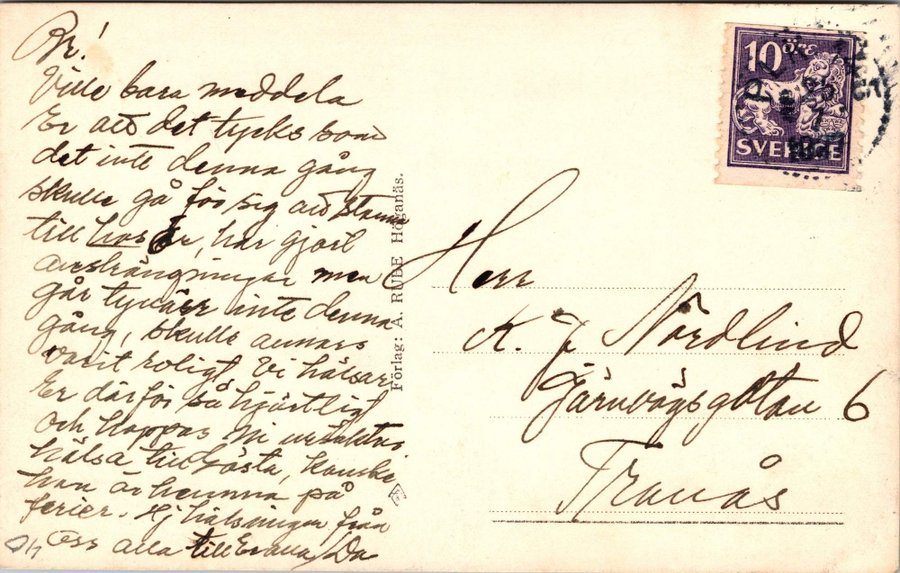 Br!
Ville bara meddela
Er att det tycks som
det inte denna gång
skulle gå för sig att stanna
till hos Er, har gjort
ansträngningar men
går tyvärr inte denna
gång, skulle annars
varit roligt. Vi hälsar
Er därför så hjärtligt
och hoppas Ni
hälsa till Gösta, kanske
han är hemma på
ferier. Hj hälsningar från
oss alla till Er alla
Förlag: A. RUDE Höganäs.
10 ÖRE
SVERIGE
Herr
K. J Nordlind
Järnvägsgatan 6
Tranås